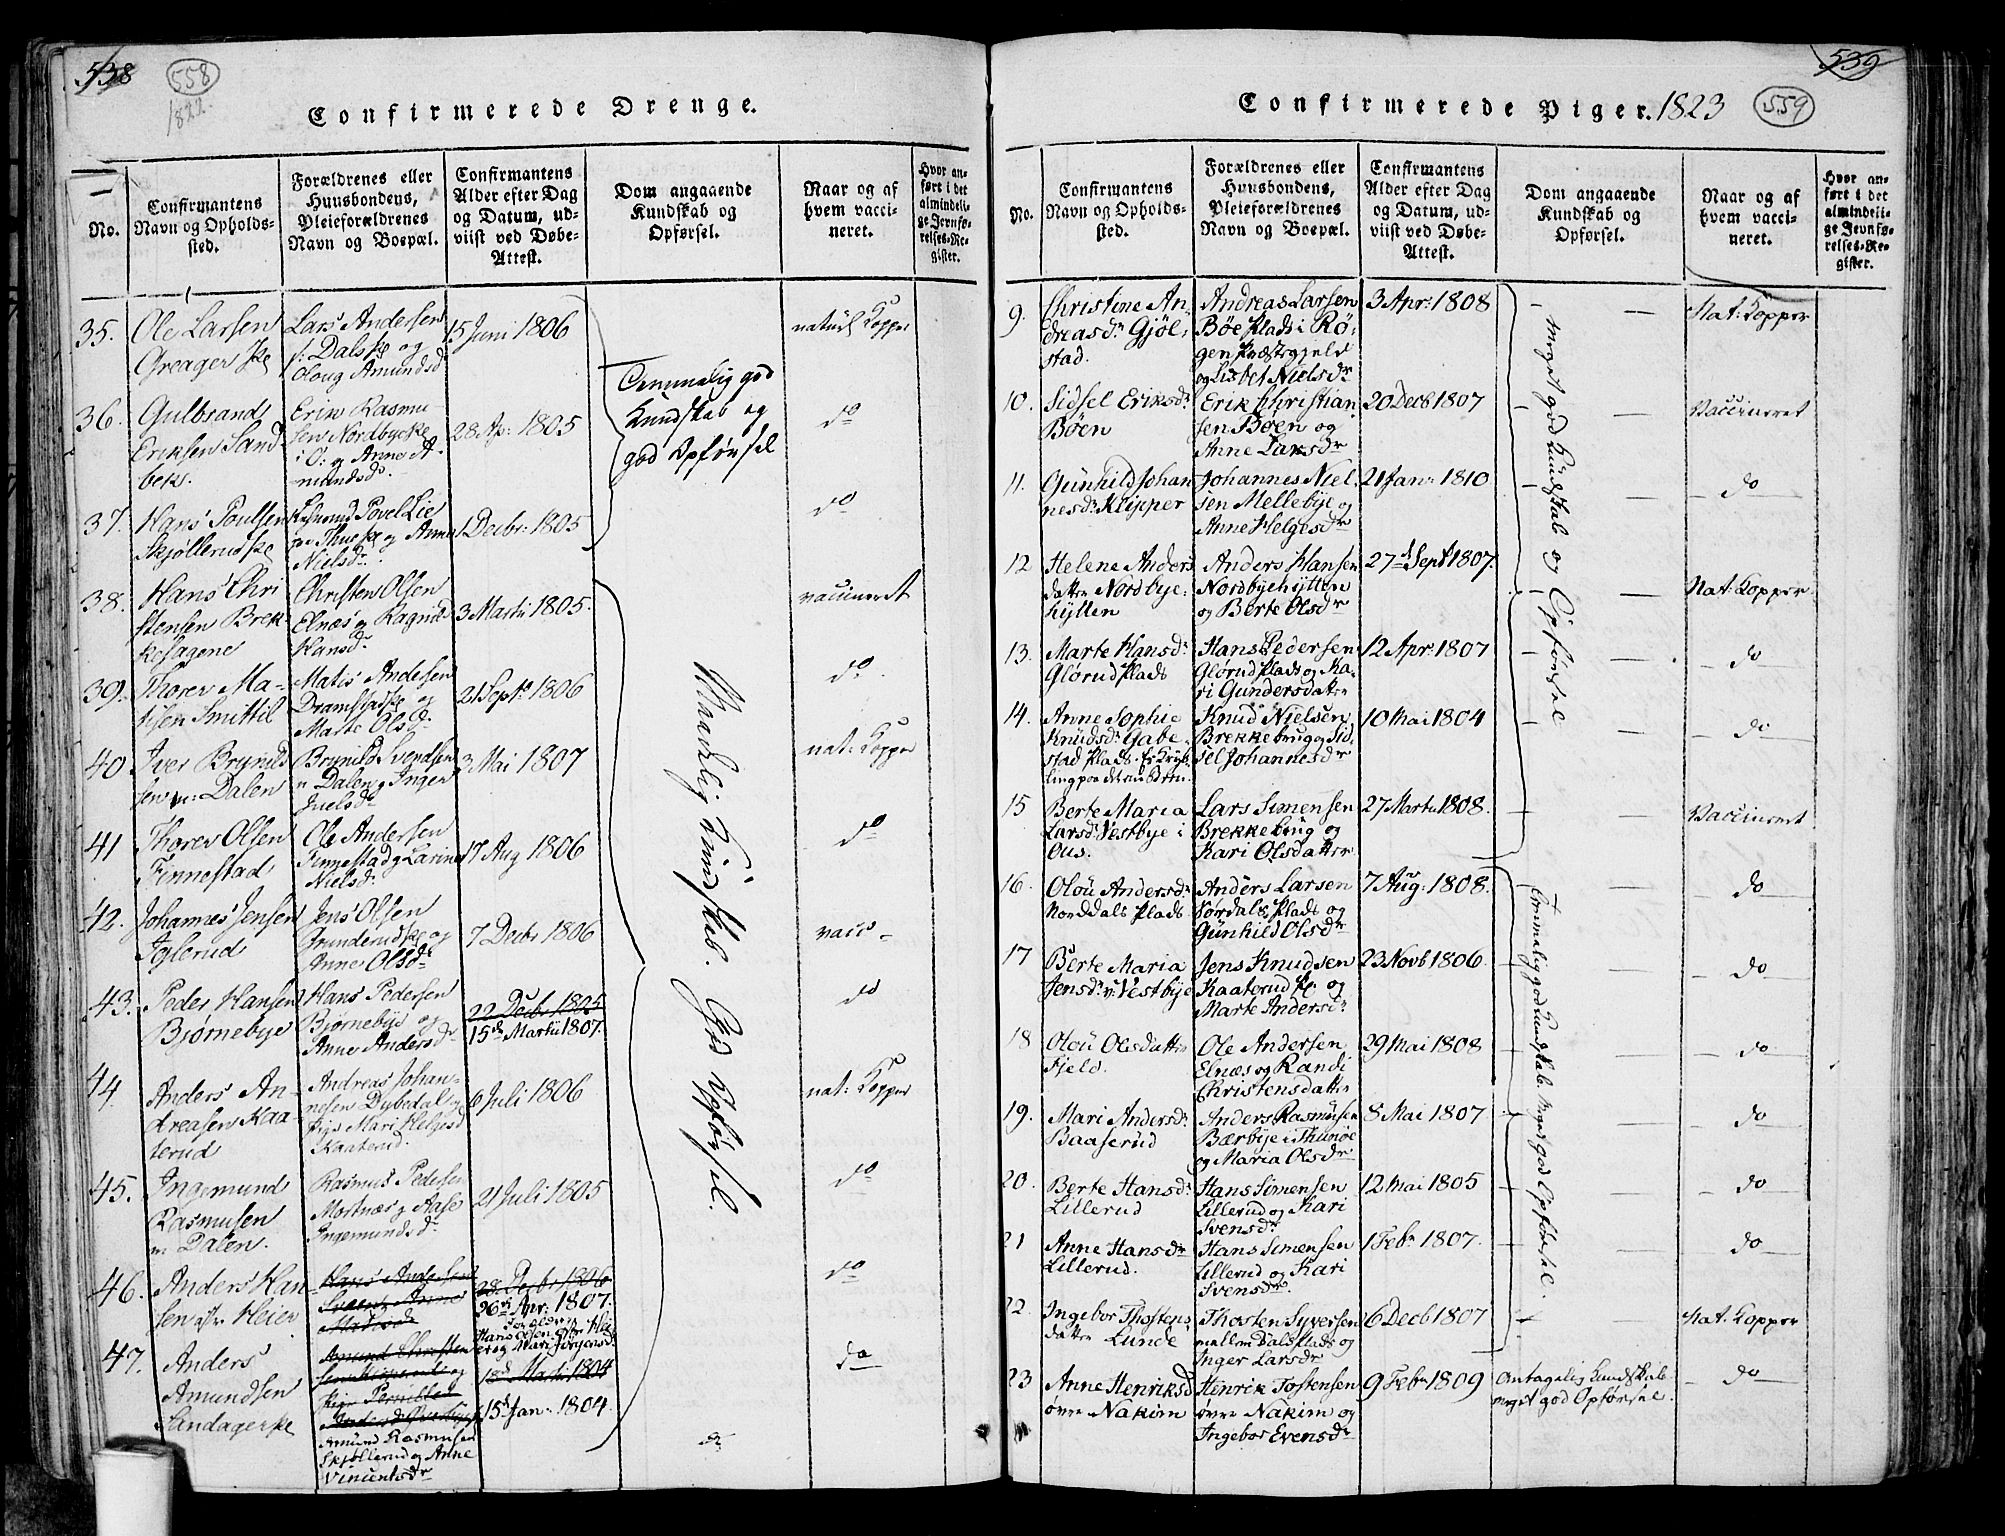 538
558
1822.
Confirmerede Drenge.
No.
Confirmantens
Navn og Opholds-
sted.
Forældrenes eller
Huusbondens,
Pleieforældrenes
Navn og Boepæl.
Confirmantens
Alder efter Dag
og Datum, ud-
viist ved Døbe-
Attest.
Dom angaaende
Kundskab og
Opførsel.
Naar og af
hvem vacci-
neret.
Hvor an-
ført i det
almindeli-
ge Jevnfø-
relses-Re-
gister.
35.
Ole Larsen
Greager
Lars Andersen
Dals og
Oloug Amundsd
15 Juni 1806
Temmelig god
Kundskab og
god Opførsel
naturl Kopper
36.
Gulbrand
Eriksen Sand
bek.
Erik Rasmu
sen Nordbycke
i Ø: og Anne A-
mundsd.
28. Ap: 1805
do
37.
Hans Poulsen
Skjøllerud
Povel Lie
og Anne
Nielsdr.
1 Decbr: 1805
do
38.
Hans Chri
stensen Brek
kesagene
Christen Olsen
Elnæs og Ragnild
Hansd.
3 Martii 1805.
Maadelig Kundskab. God Opførsel.
vaccineret
39.
Thorer Ma-
tisen Smittil
Matis Andersen
Dramstad og
Marte Olsd.
21 Septr 1806
do.
40
Iver Brynild
sen n: Dalen
Brynild Svendsen
n Dalen og Inger
Nielsd
3 Mai 1807
nat: Kopper
41
Thorer Olsen
Finnestad
Ole Andersen
Finnestad og Larine
Nielsd.
17 Aug 1806
do
42.
Johannes Jensen
Iglerud
Jens Olsen
Grunderud og
Anne Olsd.
7 Decbr 1806
vacc
43.
Peder Hansen
Bjørnebye
Hans Pedersen
Bjørnebye og
Anne Andersdr
22 Decbr 1805
15d Martii 1807.
do
44
Anders An-
dreasen Kaa
terud
Andreas Johan-
nesen Dybedal og
Mari Helgesd
Kaaterud.
6 Juli 1806
nat: Kopper
45.
Ingemund
Rasmusen
n Dalen.
Rasmus Pedersen
Mortnæs og Aase
Ingemundsd.
21 Juli 1805
do
46.
Anders Han-
sen Heier
Hans Andersen
Anne
28 Decbr 1806
26 Apr: 1807.
Forældre
Hans Olsen Hei
er og Mari Jörgensd
do
47.
Anders
Amundsen
Sandager
Amund Christen
og
Pernille
Amund Rasmusen
Skjøllerud og Anne
Vincentsdr
18d Martii 1804
15d Jan: 1804.
do
539
Confirmerede Piger. 1823
559
No.
Confirmantens
Navn og Opholds-
sted.
Forældrenes eller
Huusbondens,
Pleieforældrenes
Navn og Boepæl.
Confirmantens
Alder efter Dag
og Datum, ud-
viist ved Døbe-
Attest.
Dom angaaende
Kundskab og
Opførsel.
Naar og af
hvem vacci-
neret.
Hvor an-
ført i det
almindeli-
ge Jevnfø-
relses-Re-
gister.
9.
Christine An-
dreasdr Gjøl-
stad.
Andreas Larsen
Böe Plads i Rø-
gen Præstegjeld
og Lisbet Nielsdr
3 Apr: 1808
meget god Kundskab og Opførsel
Nat: Kopper
10.
Sidsel Eriksdr
Böen
Erik Christian
sen Böen og
Anne Larsdr
20 Decb 1807
Vaccineret
11.
Gunhild Johan
nesdr Klipper
Johannes Niel
sen Mellebye og
Anne Helgesdr
21 Janr 1810
do
12
Helene Anders
datter Nordbye-
hytten
Anders Hansen
Nordbyehytten
og Berte Olsdr
27d Sept 1807.
Nat: Kopper
13.
Marte Hansdr
Glørud Plads
Hans Pedersen
Glørud Plads og Ka-
ri Gundersdatter
12 Apr: 1807
do
14.
Anne Sophie
Knudsdr Gabe-
stad Plads. Er Kryb-
ling paa det ene Been.
Knud Nielsen
Brekkebrug og Sid
sel Johannesdr
10 Mai 1804
do
15
Berte Maria
Larsdr Vestbye i
Ous.
Lars Simensen
Brekkebrug og
Kari Olsdatter
27 Martii 1808.
Vaccineret
16.
Olou Andersdr
Norddals Plads
Anders Larsen
Nordals Plads og
Gunhild Olsdr
7 Aug: 1808.
Temmelig god Kundskab. Meget god Opførsel.
do
17
Berte Maria
Jensdr n: Vestbye
Jens Knudsen
Kaaterud og
Marte Andersdr
23 Novb 1806.
do
18
Olou Olsdatter
Fjeld.
Ole Andersen
Elnæs og Randi
Christensdatter
29 Mai 1808
do
19.
Mari Andersdr
Baaserud
Anders Rasmusen
Bærbye i Thunøe
og Maria Olsdr
8 Mai 1807
do
20.
Berte Hansdr
Lillerud
Hans Simensen
Lillerud og Kari
Svensdr
12 Mai 1805
do
21
Anne Hansdr
Lillerud.
Hans Simensen
Lillerud og Kari
Svensdr.
1 Febr 1807.
do
22.
Ingebor Thostens
datter Lunde
Thosten Syversen
mellem Dals Plads og
Inger Larsdr
6 Decb 1807
Nat. Kopper
23
Anne Henriksd
øvre Nakim
Henrik Tostensen
øvre Nakim og
Ingebor Evensdr
9 Febr 1809
Antagelig Kundskab
meget god Opførsel.
do